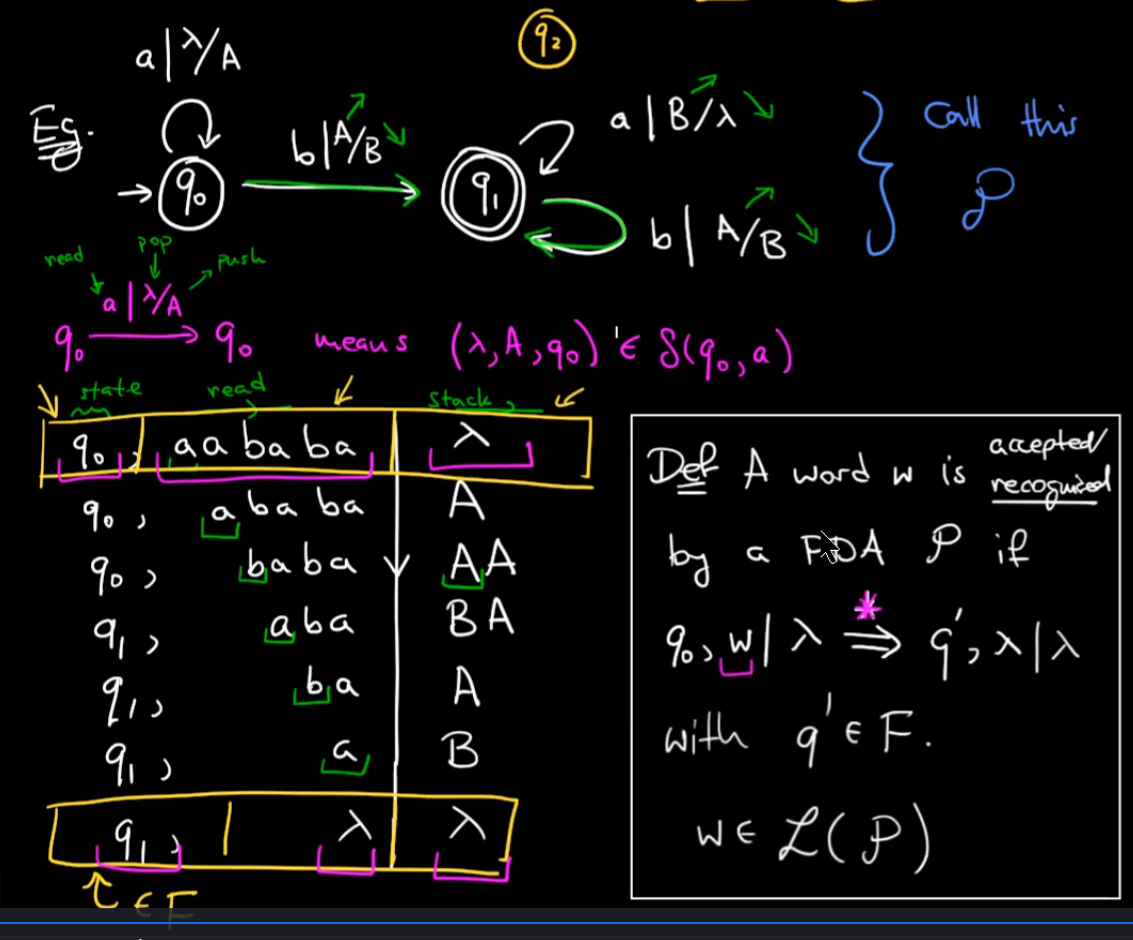 q₂
a | λ/A
Eg.
b | A/B
a | B/λ
q₀
q₁
b | A/B
Call this
𝒫
read
pop
push
a | λ/A
q₀ → q₀ means (λ, A, q₀) ∈ δ(q₀, a)
state read stack
q₀, aababa λ
q₀, ababa A
q₀, baba AA
q₁, aba BA
q₁, ba A
q₁, a B
q₁, λ λ
∈ F
Def A word w is accepted/
recognized
by a PDA 𝒫 if
q₀, w | λ ⇒* q', λ | λ
with q' ∈ F.
w ∈ ℒ(𝒫)